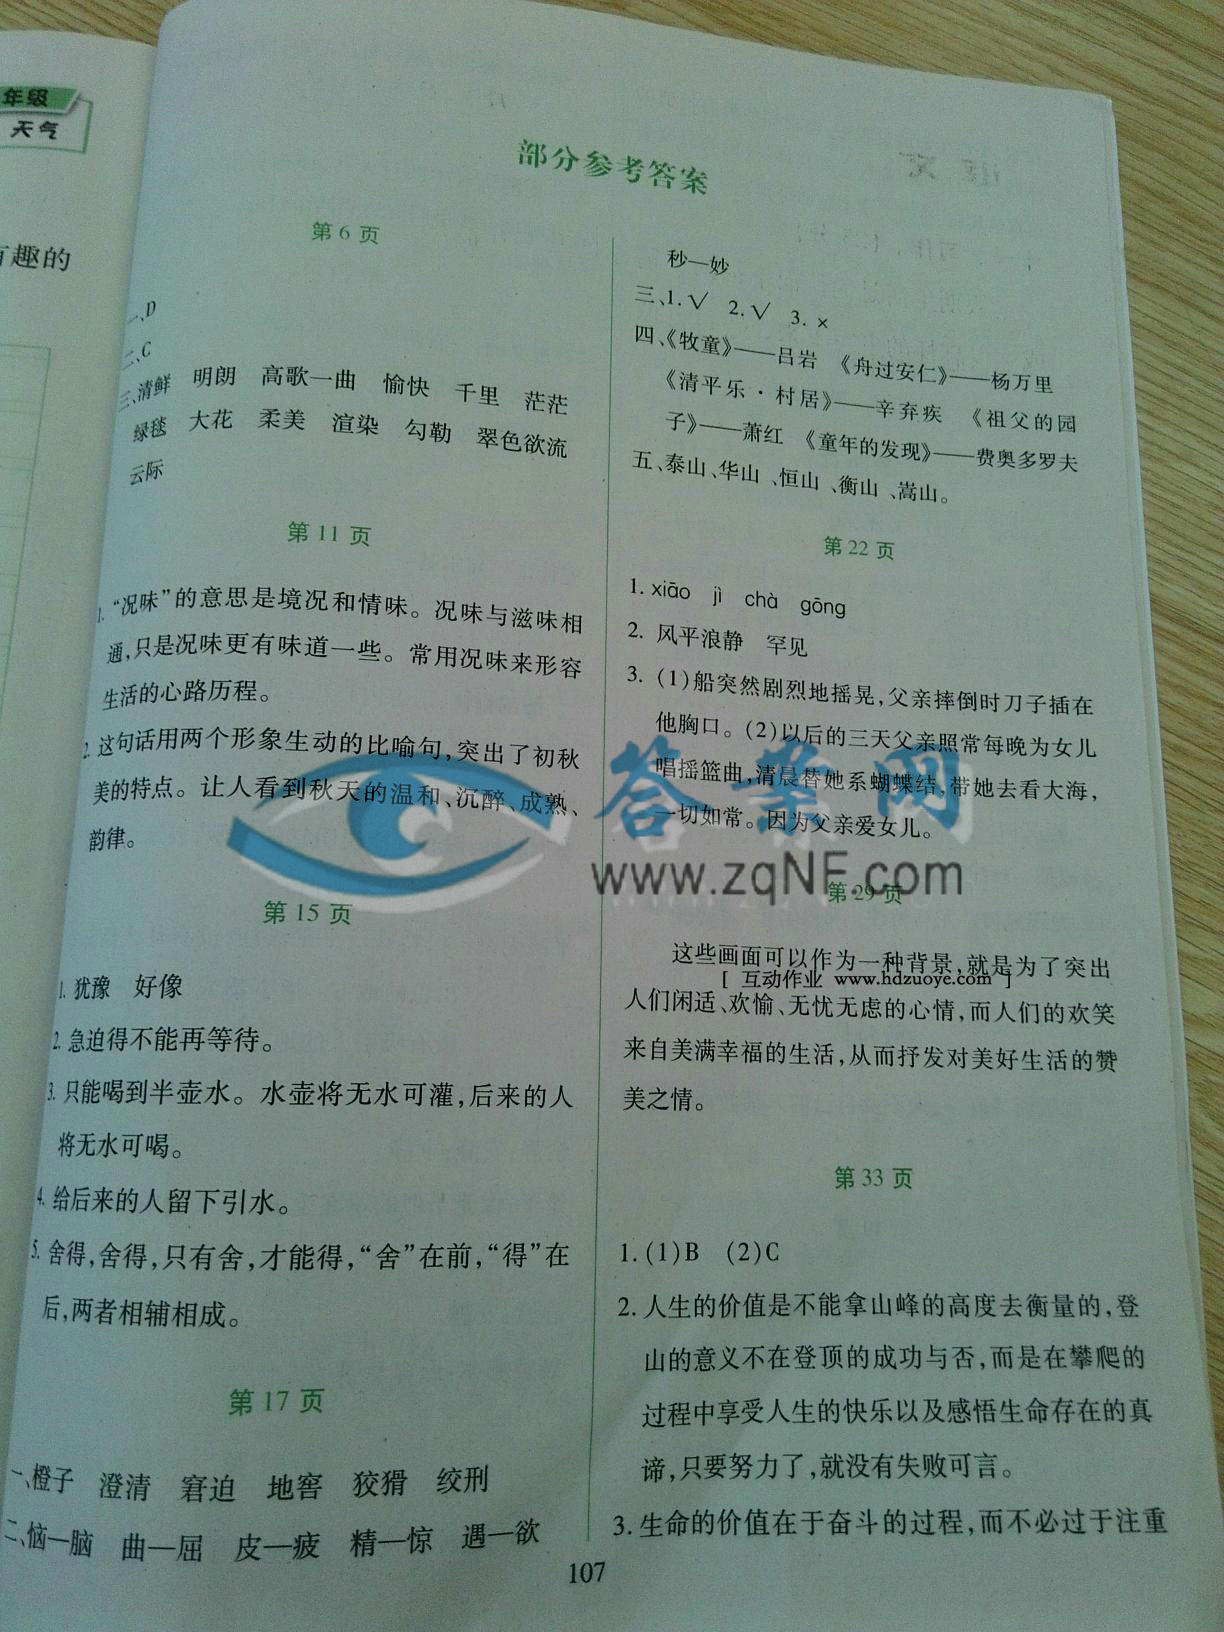 年级
天气
有趣的
部分参考答案
第 6 页
一、D
二、C
三、清鲜 明朗 高歌一曲 愉快 千里 茫茫
绿毯 大花 柔美 渲染 勾勒 翠色欲流
云际
第 11 页
1. “况味”的意思是境况和情味。况味与滋味相
通,只是况味更有味道一些。常用况味来形容
生活的心路历程。
2. 这句话用两个形象生动的比喻句,突出了初秋
美的特点。让人看到秋天的温和、沉醉、成熟、
韵律。
第 15 页
1. 犹豫 好像
2. 急迫得不能再等待。
3. 只能喝到半壶水。水壶将无水可灌,后来的人
将无水可喝。
4. 给后来的人留下引水。
5. 舍得,舍得,只有舍,才能得,“舍”在前,“得”在
后,两者相辅相成。
第 17 页
一、橙子 澄清 窘迫 地窖 狡猾 绞刑
二、恼—脑 曲—屈 皮—疲 精—惊 遇—欲
秒—妙
三、1. √ 2. √ 3. ×
四、《牧童》——吕岩 《舟过安仁》——杨万里
《清平乐·村居》——辛弃疾 《祖父的园
子》——萧红 《童年的发现》——费奥多罗夫
五、泰山、华山、恒山、衡山、嵩山。
第 22 页
1. xiāo jì chà gōng
2. 风平浪静 罕见
3. (1)船突然剧烈地摇晃,父亲摔倒时刀子插在
他胸口。(2)以后的三天父亲照常每晚为女儿
唱摇篮曲,清晨替她系蝴蝶结,带她去看大海,
一切如常。因为父亲爱女儿。
答案网
www.zqNF.com
第 29 页
这些画面可以作为一种背景,就是为了突出
[ 互动作业 www.hdzuoye.com ]
人们闲适、欢愉、无忧无虑的心情,而人们的欢笑
来自美满幸福的生活,从而抒发对美好生活的赞
美之情。
第 33 页
1. (1)B (2)C
2. 人生的价值是不能拿山峰的高度去衡量的,登
山的意义不在登顶的成功与否,而是在攀爬的
过程中享受人生的快乐以及感悟生命存在的真
谛,只要努力了,就没有失败可言。
3. 生命的价值在于奋斗的过程,而不必过于注重
107